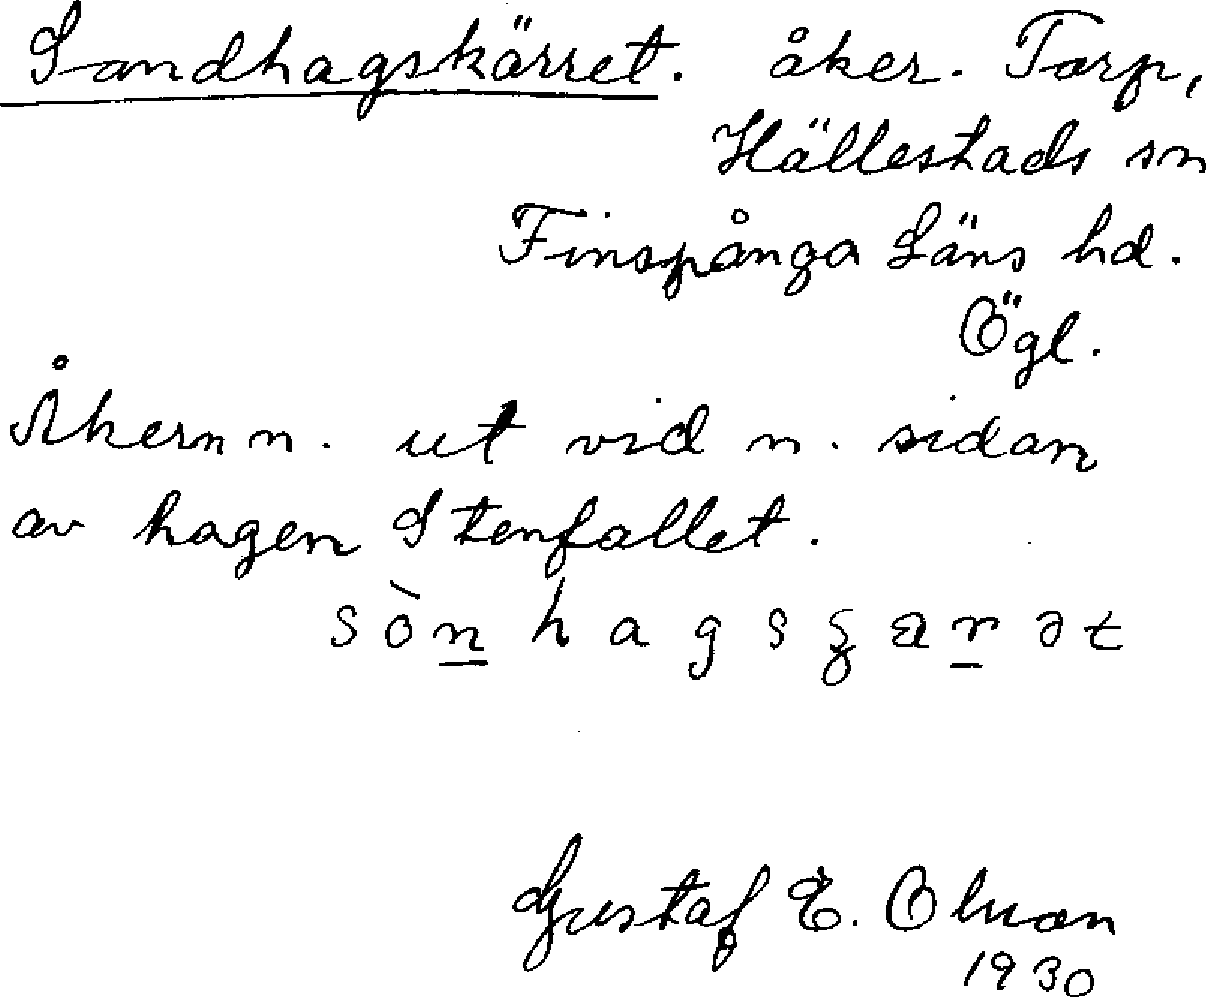 Sandhagskärret. åker. Torp,
Hällestads sn
Finspånga Läns hd.
Ögl.
Åkern n. ut vid n. sidan
av hagen Stenfallet.
sònhagsʒærət
Gustaf E. Olson
1930